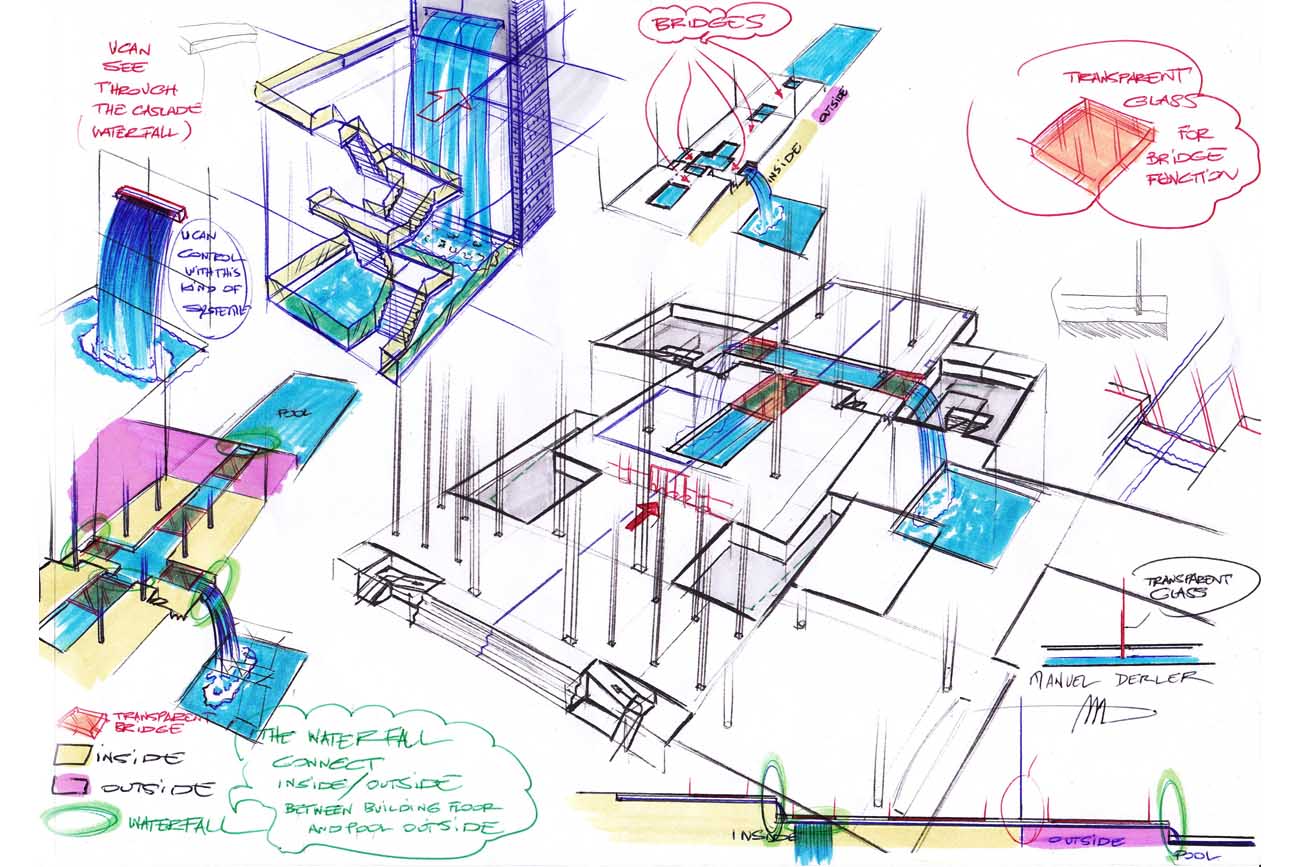 UCAN
SEE
THROUGH
THE CASCADE
(WATERFALL)
BRIDGES
OUTSIDE
INSIDE
TRANSPARENT
GLASS
FOR
BRIDGE
FUNCTION
UCAN
CONTROL
WITH THIS
KIND OF
SYSTEME
POOL
TRANSPARENT
GLASS
MANUEL DERLER
TRANSPARENT
BRIDGE
INSIDE
OUTSIDE
WATERFALL
THE WATERFALL
CONNECT
INSIDE/OUTSIDE
BETWEEN BUILDING FLOOR
AND POOL OUTSIDE
INSIDE
OUTSIDE
POOL